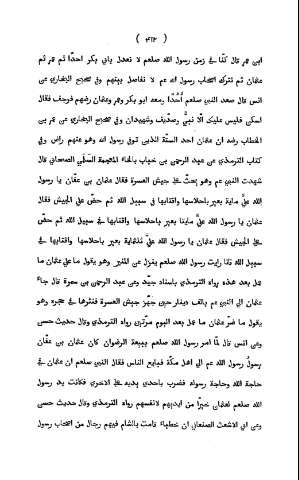 ( ٣١٣ )
ابن عمر قال كنّا فى زمن رسول الله صلعم لا نعدل بابى بكر احدًا ثم عمر ثم
عثمان ثم نترك اصحاب رسول الله عم لا نفاضل بينهم وفى صحيح البخارى عن
انس قال صعد النبى صلعم أُحُدًا ومعه ابو بكر وعمر وعثمان رضهم فرجف فقال
اسكن فليس عليك الّا نبىٌّ وصدّيق وشهيدان وفى صحيح البخارى عن عمر بن
الخطاب رضه ان عثمان احد الستّة الذين توفى رسول الله وهو عنهم راض وفى
كتاب الترمذى عن عبد الرحمن بن خباب بالخاء المعجمة السلمى الصحابى قال
شهدت النبى عم وهو يحثّ على جيش العسرة فقال عثمان بن عفّان يا رسول
الله علىَّ ماية بعير باحلاسها واقتابها فى سبيل الله ثم حضّ على الجيش فقال
عثمان يا رسول الله علىَّ مايتا بعير باحلاسها واقتابها فى سبيل الله ثم حضّ
على الجيش فقال عثمان يا رسول الله علىَّ ثلثماية بعير باحلاسها واقتابها فى
سبيل الله فانا رايت رسول الله صلعم ينزل عن المنبر وهو يقول ما على عثمان ما
عمل بعد هذه رواه الترمذى باسناد جيّد وعن عبد الرحمن بن سمرة قال جاء
عثمان الى النبى عم بالف دينار حين جهّز جيش العسرة فنثرها فى حجره وهو
يقول ما ضرّ عثمان ما عمل بعد اليوم مرّتين رواه الترمذى وقال حديث حسن
وعن انس قال لمّا امر رسول الله صلعم ببيعة الرضوان كان عثمان بن عفّان
رسولُ رسول الله عم الى اهل مكّة فبايع الناس فقال النبى صلعم ان عثمان فى
حاجة الله وحاجة رسوله فضرب باحدى يديه على الاخرى فكانت يد رسول
الله صلعم لعثمان خيرًا من ايديهم لانفسهم رواه الترمذى وقال حديث حسن
وعن ابى الاشعث الصنعانى ان خطباء قامت بالشام فيهم رجال من اصحاب رسول